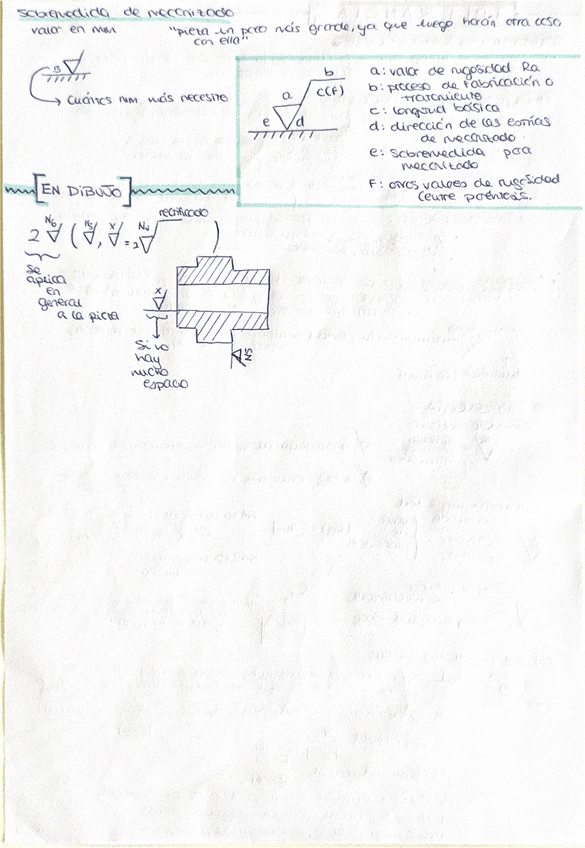 sobremedida de mecanizado
valor en mm
"pieza un poco más grande, ya que luego harán otra cosa
con ella"
→ cuántos mm más necesito
b
a c(F)
e d
a: valor de rugosidad Ra
b: proceso de fabricación o
tratamiento
c: longitud básica
d: dirección de las estrías
de mecanizado.
e: sobremedida para
mecanizado
F: otros valores de rugosidad
(entre paréntesis.
[EN DIBUJO]
rectificado
2 N6 ( N5, X = 2 N4
Se
aplica
en
general
a la pieza
X
Si no
hay
mucho
espacio
N5